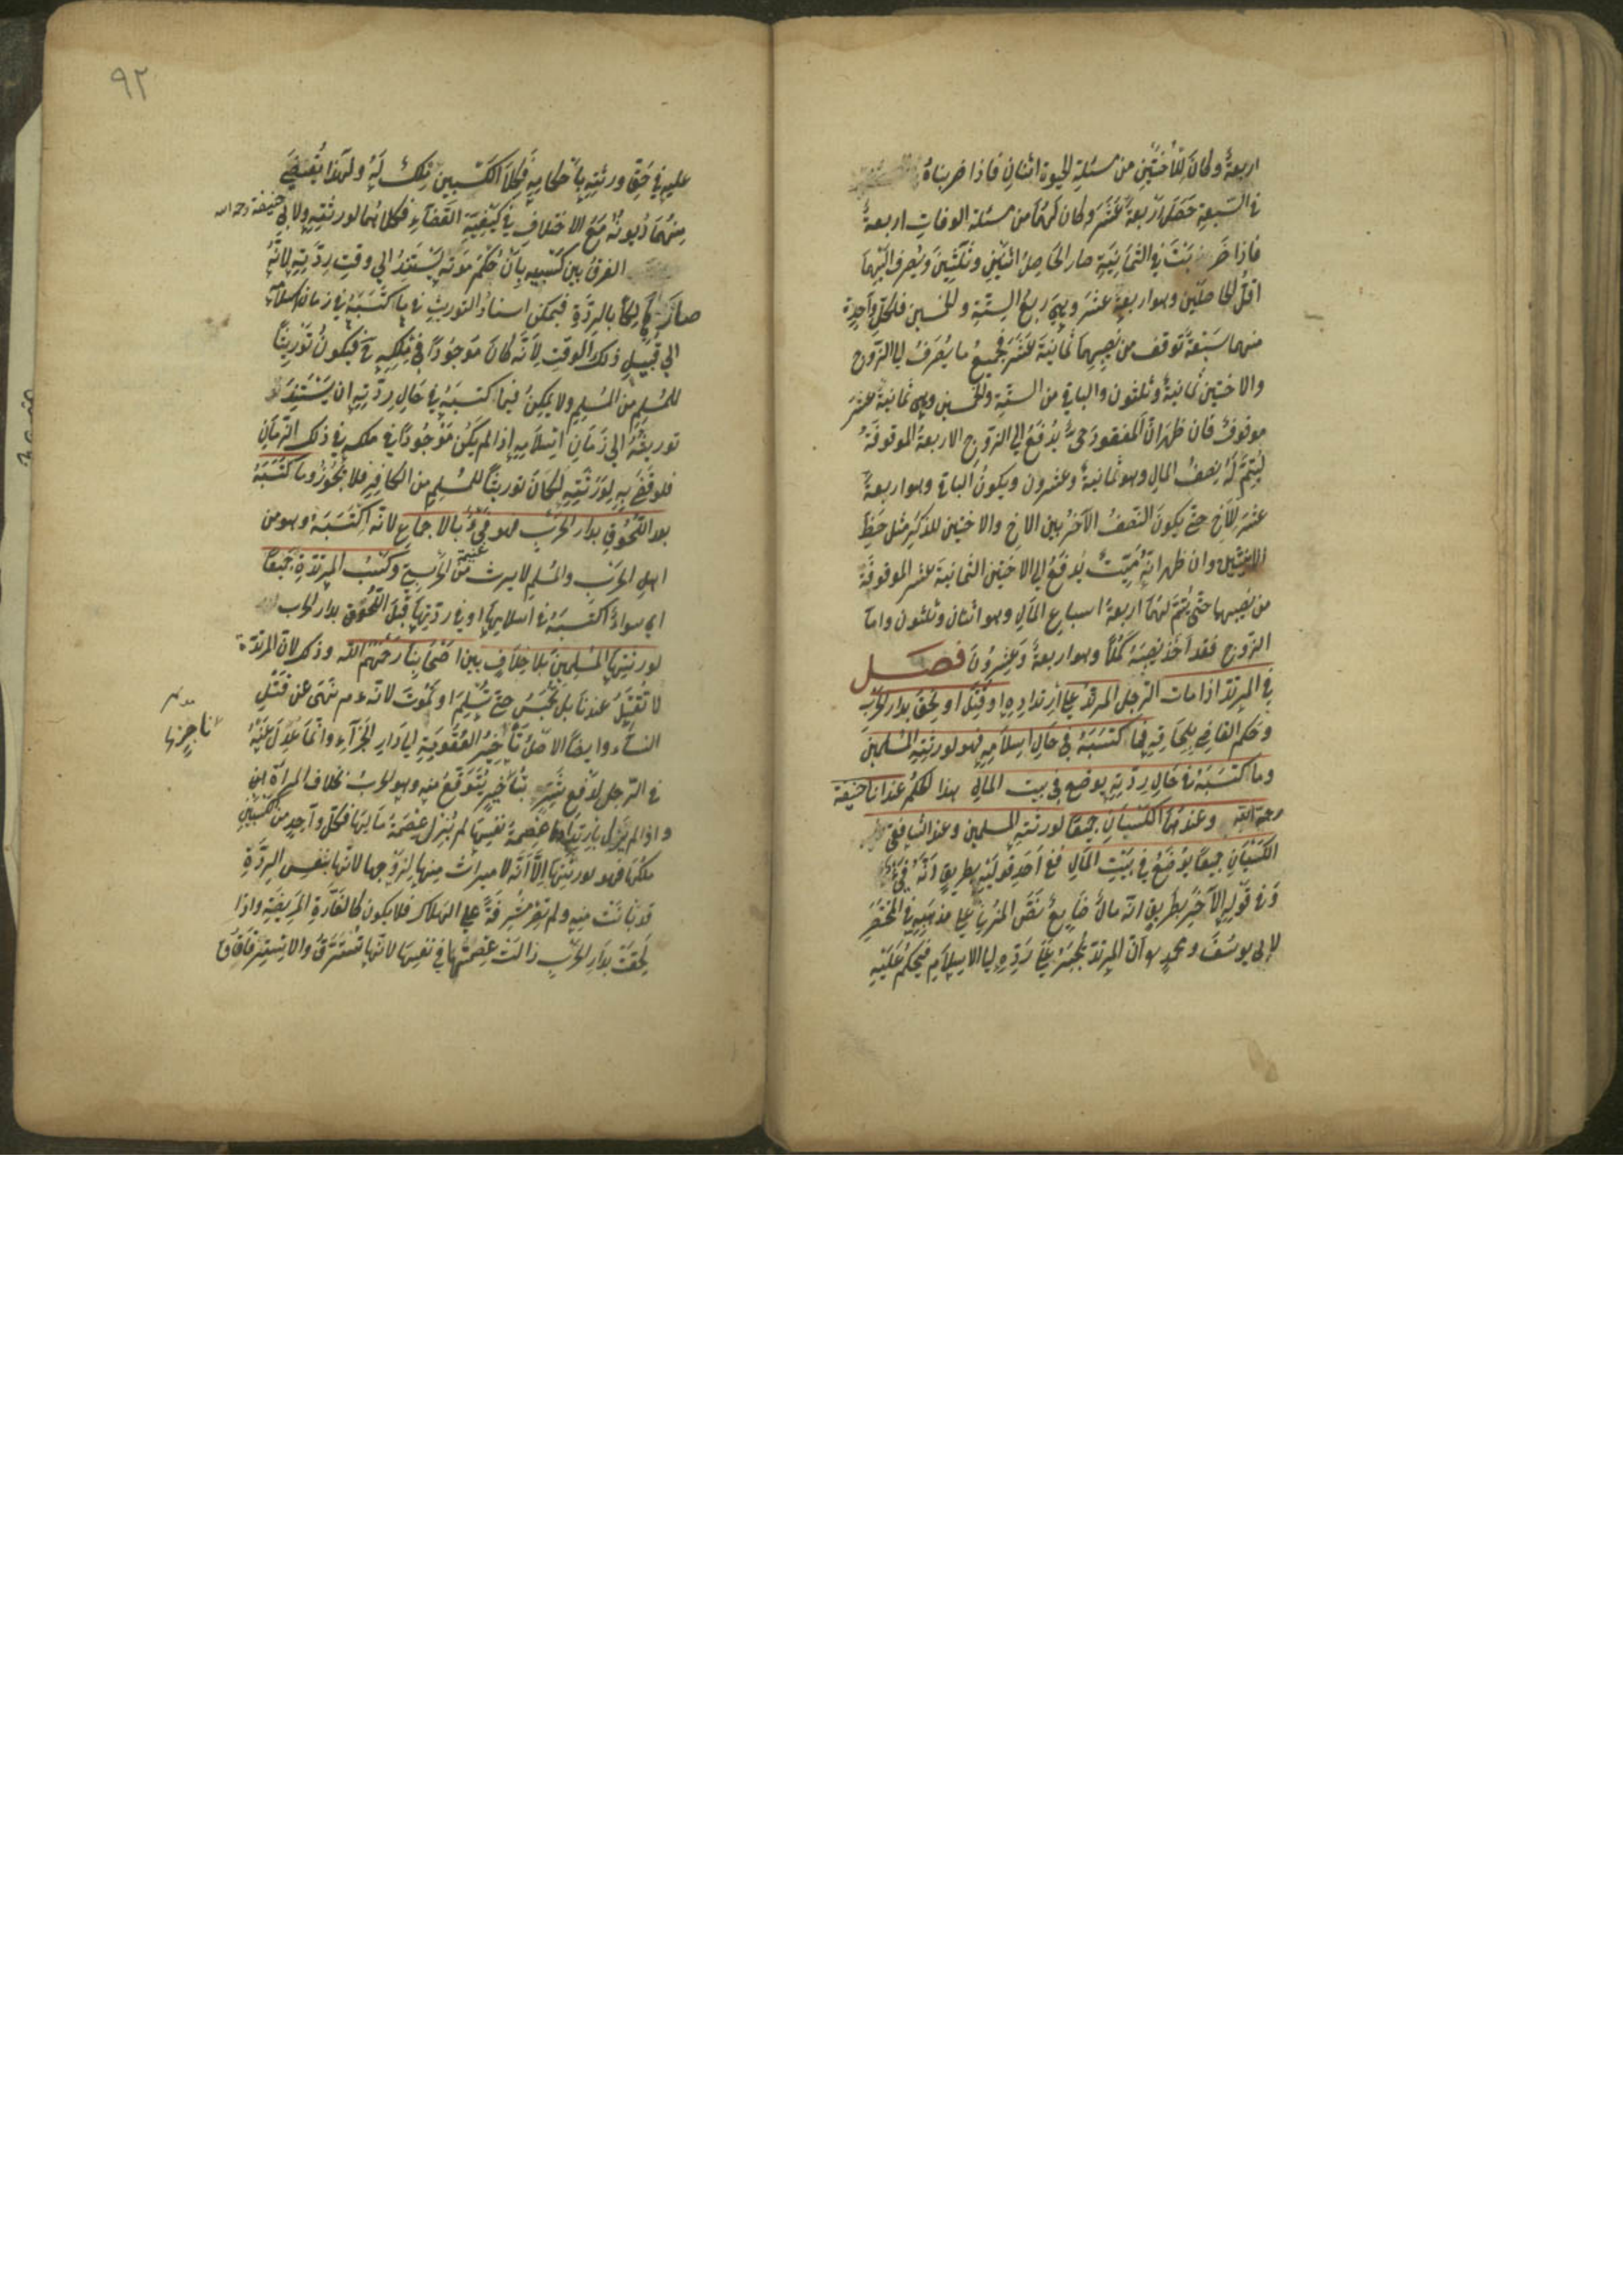 اربعةٌ وكان للأختين من مسئلة الحيوة اثنان فاذا ضربناهُ
فى السّبعةِ حَصَلَ اربعةَ عَشَرَ وكان لهُمَا من مسئلة الوفات اربعةٌ
فاذا ضَربَتْ فى الثمَانِيَةِ صار الحَاصِلُ اثنَيْنِ وثَلٰثِينَ ويُصرفُ اليْهِمَا
اقلُّ الحَاصلَيْنِ وهو اربعةَ عَشَرَ وهِيَ ربعُ السِّتّةِ والخمسين فلكلِّ وَاحِدةٍ
منهما سَبْعَةٌ توقف من نَصِيبِهِمَا ثمانيَةَ عَشَرَ فجميعُ ما يُصْرَفُ الى الزّوج
والاختين ثمانيةٌ وثلثون والباقي من السِتّةِ والخمسين وهى ثمانيةَ عشرَ
موقوفٌ فان ظهرَ انّ المفقودَ حىٌّ يُدفَعُ الى الزّوجِ الاربعةُ الموقوفةُ
ليُتِمَّ لَهُ نصفُ المال وهو ثمانيةٌ وعشرون ويكونُ الباقى وهو اربعةَ
عَشَرَ للاخِ حتّى يكونَ النّصفُ الآخرُ بين الاخِ والاختين للذكَرِ مثل حَظِّ
الانثيين وان ظهر انّهُ مَيّتٌ يُدفَعُ الى الاختين الثمانيةَ عشر الموقوفةَ
من نصيبهما حتّى يُتِمَّ لهُمَا اربعةُ اسباعِ المَالِ وهو اثنان وثلثون وامّا
الزّوج فقد اخَذَ نصِيبَهُ كَمَلًا وهو اربعةٌ وَعِشْرُونَ فصــل
فى المرتدّ اذا مات الرّجل المرتدُّ على ارتدادِهِ او قُتِلَ او لَحِقَ بدار الحربِ
وحكم القاضى بِلِحَاقِهِ فما اكتسَبَهُ فى حَالِ اسلامِهِ فهو لورثتِهِ المُسْلِمينَ
وما اكتسَبَهُ فى حَال ردّتِهِ يوضع فى بيت المالِ هذا الحكمُ عند ابا حنيفة
رحمة الله وعندهُمَا الكَسْبَانِ جميعًا لورثتِهِ المسلمين وعند الشافعىّ
الكَسْبَانِ جميعًا يُوضَعُ فى بَيْتِ المَالِ ففى اَحَدِ قولَيْهِ بطريقِ انّهُ فَىْءٌ
وفى قَوْلِهِ الآخَرِ بطريقِ انّه مالٌ ضَايعٌ نَصَّ المزنىّ على مذهَبِهِ فى المختصَرِ
لابى يوسَفَ ومحمدٍ هو اَنّ المرتدّ يُجْبَرُ عَلىٰ ردِّهِ الى الاسلامِ فيحكمُ عَلَيْهِ
٩٢
عليهِ فى حَقِّ ورثتِهِ بِاَحْكامِهِ فكِلَا الكَسْبين ملكٌ لَهُ ولهٰذا يُقْضىٰ
منهُمَا دُيونُهُ مَعَ الاختلافِ فى كَيْفِيَّةِ القَضآءِ فكلاهُما لورثتِهِ ولابى حنيفة رحمه الله
الفرقُ بين كَسْبَيهِ بِاَنّ حُكمَ مَوتهِ يَسْتَنِدُ الى وقتِ رِدّتِهِ لانّهُ
صارَ هَالِكًا بالرِدَّةِ فيمكن اسنادُ التوريثِ فى ما اكتَسَبَهُ فى زمان اسلامه
الى قُبَيْلِ ذلك الوَقتِ لِاَنّهُ كان مَوجُودًا فى مِلكِهِ ح فيكونُ تَوْرِيثًا
للمُسْلِمِ من المُسْلِمِ ولا يمكِنُ فيما اكتسَبَهُ فى حَالِ ردّتِهِ ان يَسْتَنِدَ
توريثُهُ الى زَمَانِ اسْلَامِهِ اذ لم يَكُن مَوْجُودًا فى ملكه فى ذلك الزّمَانِ
فلو قَضىٰ بِهِ لِوَرَثَتِهِ لَكَانَ توريثًا للمُسْلِمِ من الكافِرِ فلا يجُوزُ وما اكتَسَبَهُ
بعد اللّحُوقِ بدار الحَربِ فهو فَىْءٌ بالاجماعِ لانّه اكتَسَبَهُ وهو من
اهل الحرب والمُسْلِم لا يرث من الحَرْبىِّ وكَسْبُ المرتدَّةِ جَميعًا
اى سواءٌ اكتسَبَتْهُ فى اسلامِهَا او فى ردّتِهَا قَبلَ اللّحُوقِ بدار الحرب
لورثتِهَا المُسْلِمينَ بلا خِلَافٍ بين اصْحَابِنَا رَحمَهُم الله وذكر لانّ المرتدّة
لا تُقْتَلُ عندنَا بل تُحْبَسُ حتّى تُسْلِمَ او تَمُوتَ لانّه عم نَهَى عن قَتْلِ
النسَآء وايضًا الاصْلُ تأخيرُ العُقُوبَةِ الى دَارِ الجَزآءِ وانّما عُدِلَ عَنْهُ
فى الرّجل لدَفْعِ شَرٍّ نَاجِزٍ يُتَوَقّعُ مِنهُ وهو الحِرابُ بخلاف المرأة
واذا لم يَزُل بارتدادِهَا عِصمةُ نَفْسِهَا لم يُزل عِصْمَةُ مَالِهَا فكلّ وَاحِدٍ من كَسْبَيْنِ
ملكُهَا فهو لورثتِهَا اِلَّا اَنَّهُ لا ميراث منها لِزَوْجها لانّها بنفسِ الرِدَّةِ
قد بانَتْ منه ولم تَصِرْ مُشْرِفَةً على الهَلاك فلا يكون كالفَارّةِ المَرِيضَةِ واذا
لَحِقَتْ بدَارِ الحربِ زالت عِصْمَتُها فى نفسِهَا لانّها تُسْتَرَقُّ والاسترقَاقُ